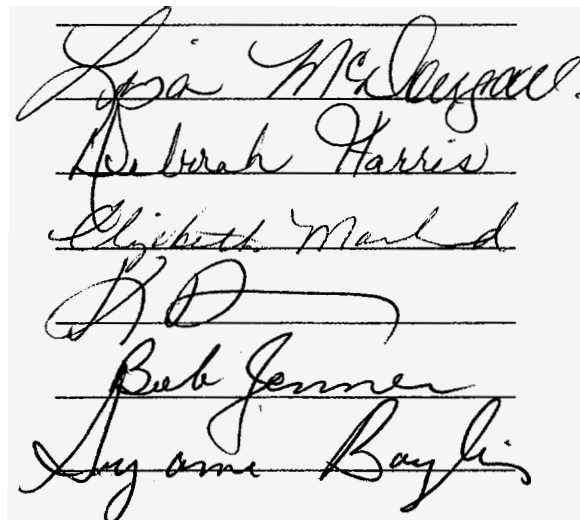 Lisa McDougall
Deborah Harris
Elizabeth
K D
Bob Jenner
Suzanne Bayliss